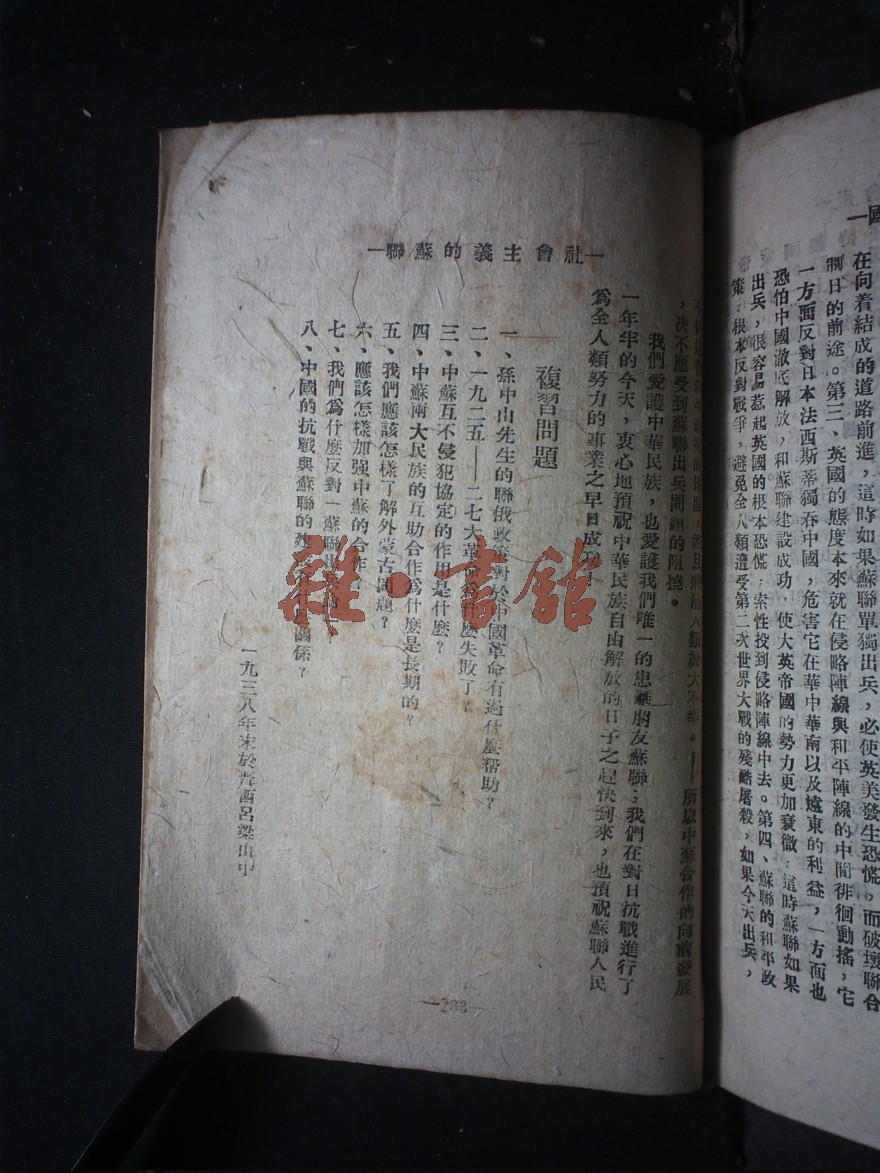 國—
在向着結成的道路前進，這時如果蘇聯單獨出兵，必使英美發生恐慌，而破壞聯合
制日的前途。第三、英國的態度本來就在侵略陣線與和平陣線的中間徘徊動搖，它
一方面反對日本法西斯蒂獨吞中國，危害它在華中華南以及遠東的利益，一方面也
恐怕中國澈底解放，和蘇聯建設成功，使大英帝國的勢力更加衰微；這時蘇聯如果
出兵，很容易惹起英國的根本恐慌；索性投到侵略陣線中去。第四、蘇聯的和平政
策；根本反對戰爭，避免全人類遭受第二次世界大戰的殘酷屠殺，如果今天出兵，
—社會主義的蘇聯—
人類於大不幸。——所以中蘇合作的向前發展
，決不應受到蘇聯出兵問題的阻撓。
我們愛護中華民族，也愛護我們唯一的患難朋友蘇聯；我們在對日抗戰進行了
一年半的今天，衷心地預祝中華民族自由解放的日子之趕快到來，也預祝蘇聯人民
為全人類努力的事業之早日成功！
複習問題
一、孫中山先生的聯俄政策對於中國革命有過什麼幫助？
二、一九二五——二七大革命為什麼失敗了？
三、中蘇互不侵犯協定的作用是什麼？
四、中蘇兩大民族的互助合作為什麼是長期的？
五、我們應該怎樣了解外蒙古問題？
六、應該怎樣加强中蘇的合作
七、我們為什麼反對「蘇聯出兵
八、中國的抗戰與蘇聯的 關係？
一九三八年末於晋西呂梁山中
—283—
雜·書館